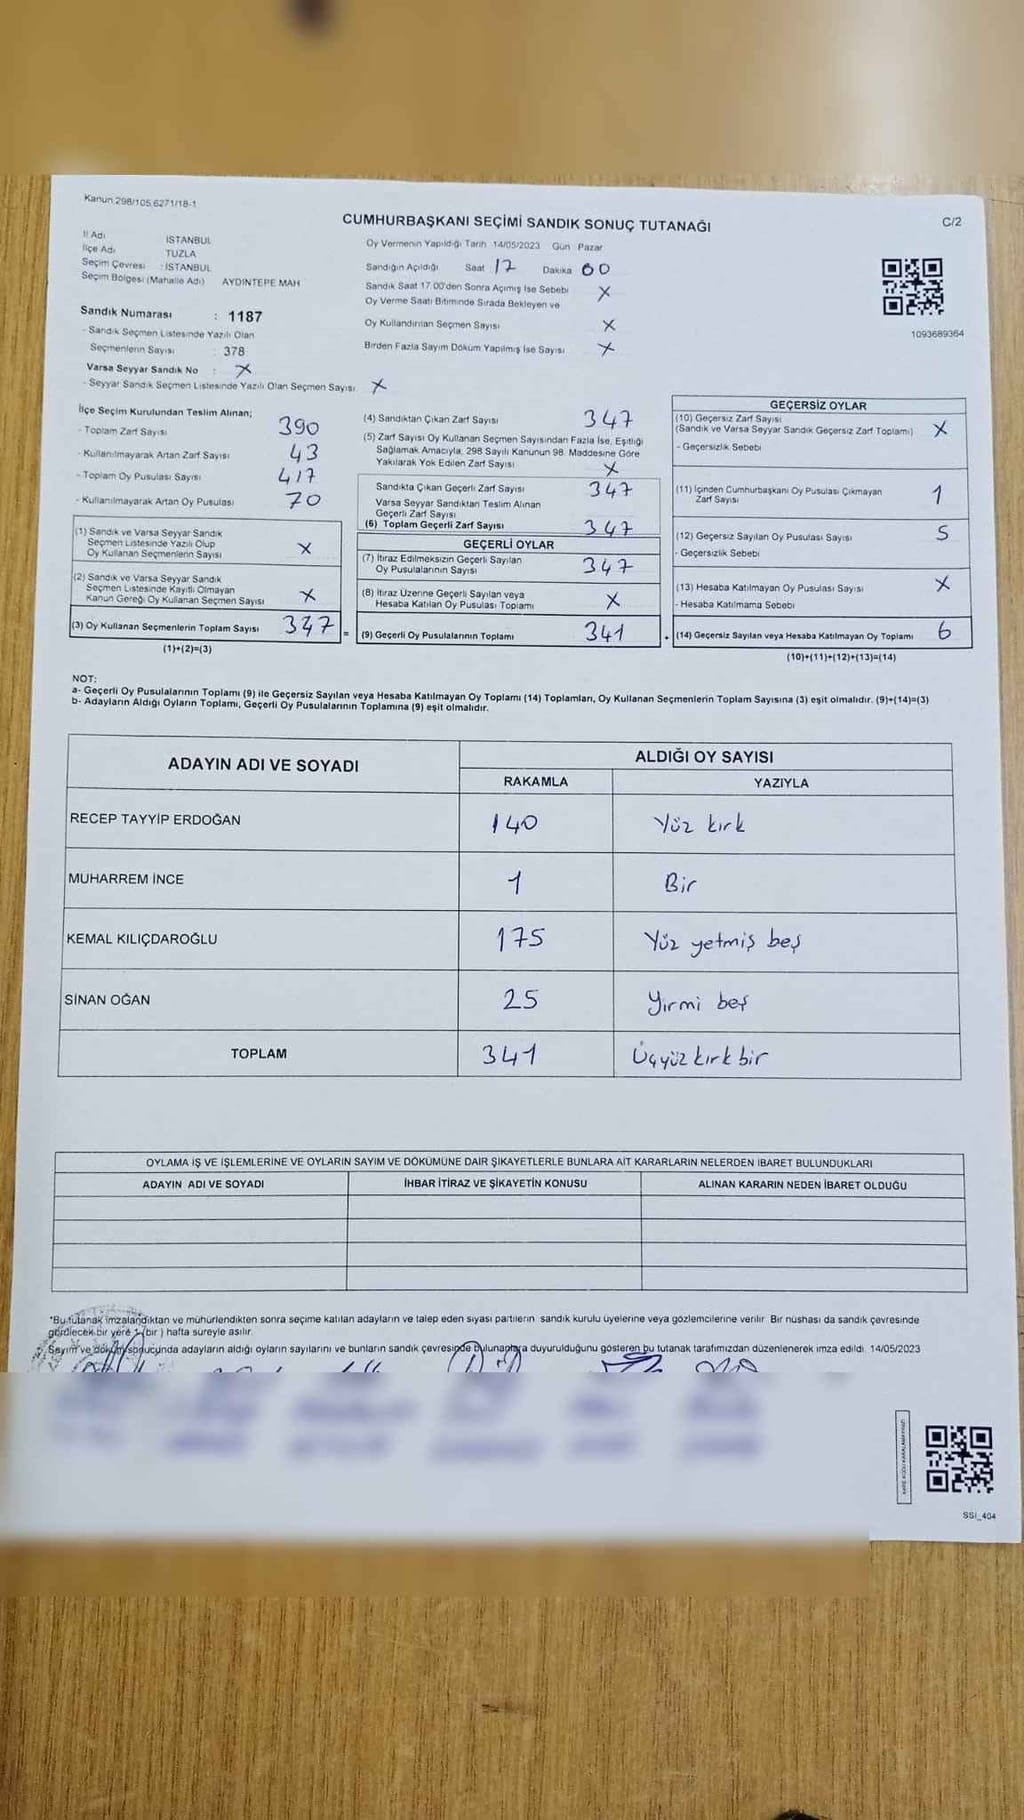 Kanun 298/105,6271/18-1
CUMHURBAŞKANI SEÇİMİ SANDIK SONUÇ TUTANAĞI
C/2
İl Adı İSTANBUL
İlçe Adı TUZLA
Seçim Çevresi : İSTANBUL
Seçim Bölgesi (Mahalle Adı) AYDINTEPE MAH
Sandık Numarası : 1187
- Sandık Seçmen Listesinde Yazılı Olan
Seçmenlerin Sayısı : 378
Varsa Seyyar Sandık No : X
- Seyyar Sandık Seçmen Listesinde Yazılı Olan Seçmen Sayısı X
Oy Vermenin Yapıldığı Tarih 14/05/2023 Gün Pazar
Sandığın Açıldığı Saat 17 Dakika 00
Sandık Saat 17.00'den Sonra Açımış İse Sebebi X
Oy Verme Saati Bitiminde Sırada Bekleyen ve
Oy Kullandırılan Seçmen Sayısı X
Birden Fazla Sayım Döküm Yapılmış İse Sayısı X
1093689364
İlçe Seçim Kurulundan Teslim Alınan;
- Toplam Zarf Sayısı 390
- Kullanılmayarak Artan Zarf Sayısı 43
- Toplam Oy Pusulası Sayısı 417
- Kullanılmayarak Artan Oy Pusulası 70
(1) Sandık ve Varsa Seyyar Sandık
Seçmen Listesinde Yazılı Olup
Oy Kullanan Seçmenlerin Sayısı X
(2) Sandık ve Varsa Seyyar Sandık
Seçmen Listesinde Kayıtlı Olmayan
Kanun Gereği Oy Kullanan Seçmen Sayısı X
(3) Oy Kullanan Seçmenlerin Toplam Sayısı 347 =
(1)+(2)=(3)
(4) Sandıktan Çıkan Zarf Sayısı 347
(5) Zarf Sayısı Oy Kullanan Seçmen Sayısından Fazla İse, Eşitliği
Sağlamak Amacıyla, 298 Sayılı Kanunun 98. Maddesine Göre
Yakılarak Yok Edilen Zarf Sayısı X
Sandıkta Çıkan Geçerli Zarf Sayısı 347
Varsa Seyyar Sandıktan Teslim Alınan
Geçerli Zarf Sayısı
(6) Toplam Geçerli Zarf Sayısı 347
GEÇERLİ OYLAR
(7) İtiraz Edilmeksizin Geçerli Sayılan
Oy Pusulalarının Sayısı 347
(8) İtiraz Üzerine Geçerli Sayılan veya
Hesaba Katılan Oy Pusulası Toplamı X
(9) Geçerli Oy Pusulalarının Toplamı 341
GEÇERSİZ OYLAR
(10) Geçersiz Zarf Sayısı
(Sandık ve Varsa Seyyar Sandık Geçersiz Zarf Toplamı) X
- Geçersizlik Sebebi
(11) İçinden Cumhurbaşkanı Oy Pusulası Çıkmayan
Zarf Sayısı 1
(12) Geçersiz Sayılan Oy Pusulası Sayısı 5
- Geçersizlik Sebebi
(13) Hesaba Katılmayan Oy Pusulası Sayısı X
- Hesaba Katılmama Sebebi
(14) Geçersiz Sayılan veya Hesaba Katılmayan Oy Toplamı 6
(10)+(11)+(12)+(13)=(14)
NOT:
a- Geçerli Oy Pusulalarının Toplamı (9) ile Geçersiz Sayılan veya Hesaba Katılmayan Oy Toplamı (14) Toplamları, Oy Kullanan Seçmenlerin Toplam Sayısına (3) eşit olmalıdır. (9)+(14)=(3)
b- Adayların Aldığı Oyların Toplamı, Geçerli Oy Pusulalarının Toplamına (9) eşit olmalıdır.
ADAYIN ADI VE SOYADI ALDIĞI OY SAYISI
RAKAMLA YAZIYLA
RECEP TAYYİP ERDOĞAN 140 Yüz kırk
MUHARREM İNCE 1 Bir
KEMAL KILIÇDAROĞLU 175 Yüz yetmiş beş
SİNAN OĞAN 25 Yirmi beş
TOPLAM 341 Üçyüz kırk bir
OYLAMA İŞ VE İŞLEMLERİNE VE OYLARIN SAYIM VE DÖKÜMÜNE DAİR ŞİKAYETLERLE BUNLARA AİT KARARLARIN NELERDEN İBARET BULUNDUKLARI
ADAYIN ADI VE SOYADI İHBAR İTİRAZ VE ŞİKAYETİN KONUSU ALINAN KARARIN NEDEN İBARET OLDUĞU
*Bu tutanak imzalandıktan ve mühürlendikten sonra seçime katılan adayların ve talep eden siyasi partilerin sandık kurulu üyelerine veya gözlemcilerine verilir. Bir nüshası da sandık çevresinde
görülecek bir yere 1 (bir ) hafta süreyle asılır.
Sayım ve döküm sonucunda adayların aldığı oyların sayılarını ve bunların sandık çevresinde bulunanlara duyurulduğunu gösteren bu tutanak tarafımızdan düzenlenerek imza edildi. 14/05/2023
SSI_404